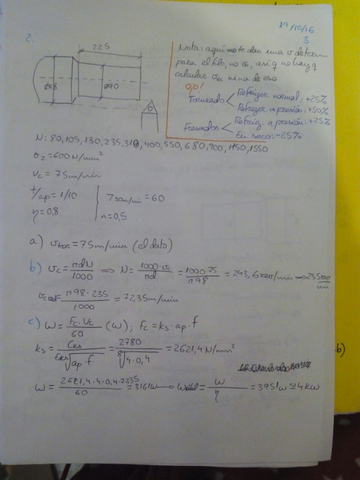 19/10/16
3
2.
225
Nota: aquí no te dan una v de tern
para el filo, no co, así q no hay q
calcular
ojo!
Torneado Refriger normal: +25%
Refriger a presión: +50%
Fresado Refrig. a presión: +25%
En seco: -25%
N: 80, 105, 130, 235, 310, 400, 550, 680, 900, 1150, 1550
σz = 600 N/mm²
Vc = 75 m/min
f/ap = 1/10 75 m/min = 60
η = 0,8 n = 0,5
a) = 75 m/min (el dato)
b) Vc = πdN/1000 ⟹ N = 1000·vc/πd = 1000·75/π98 = 243,6 rev/min → 235 rev/min
= π98·235/1000 = 72,35 m/min
c) W = Fc·Vc/60 (W); Fc = ks·ap·f
ks = = 2780/ = 2621,4 N/mm²
W = /60 = 3161 W → = W/η = 3951 W ≃ 4 kW
b)